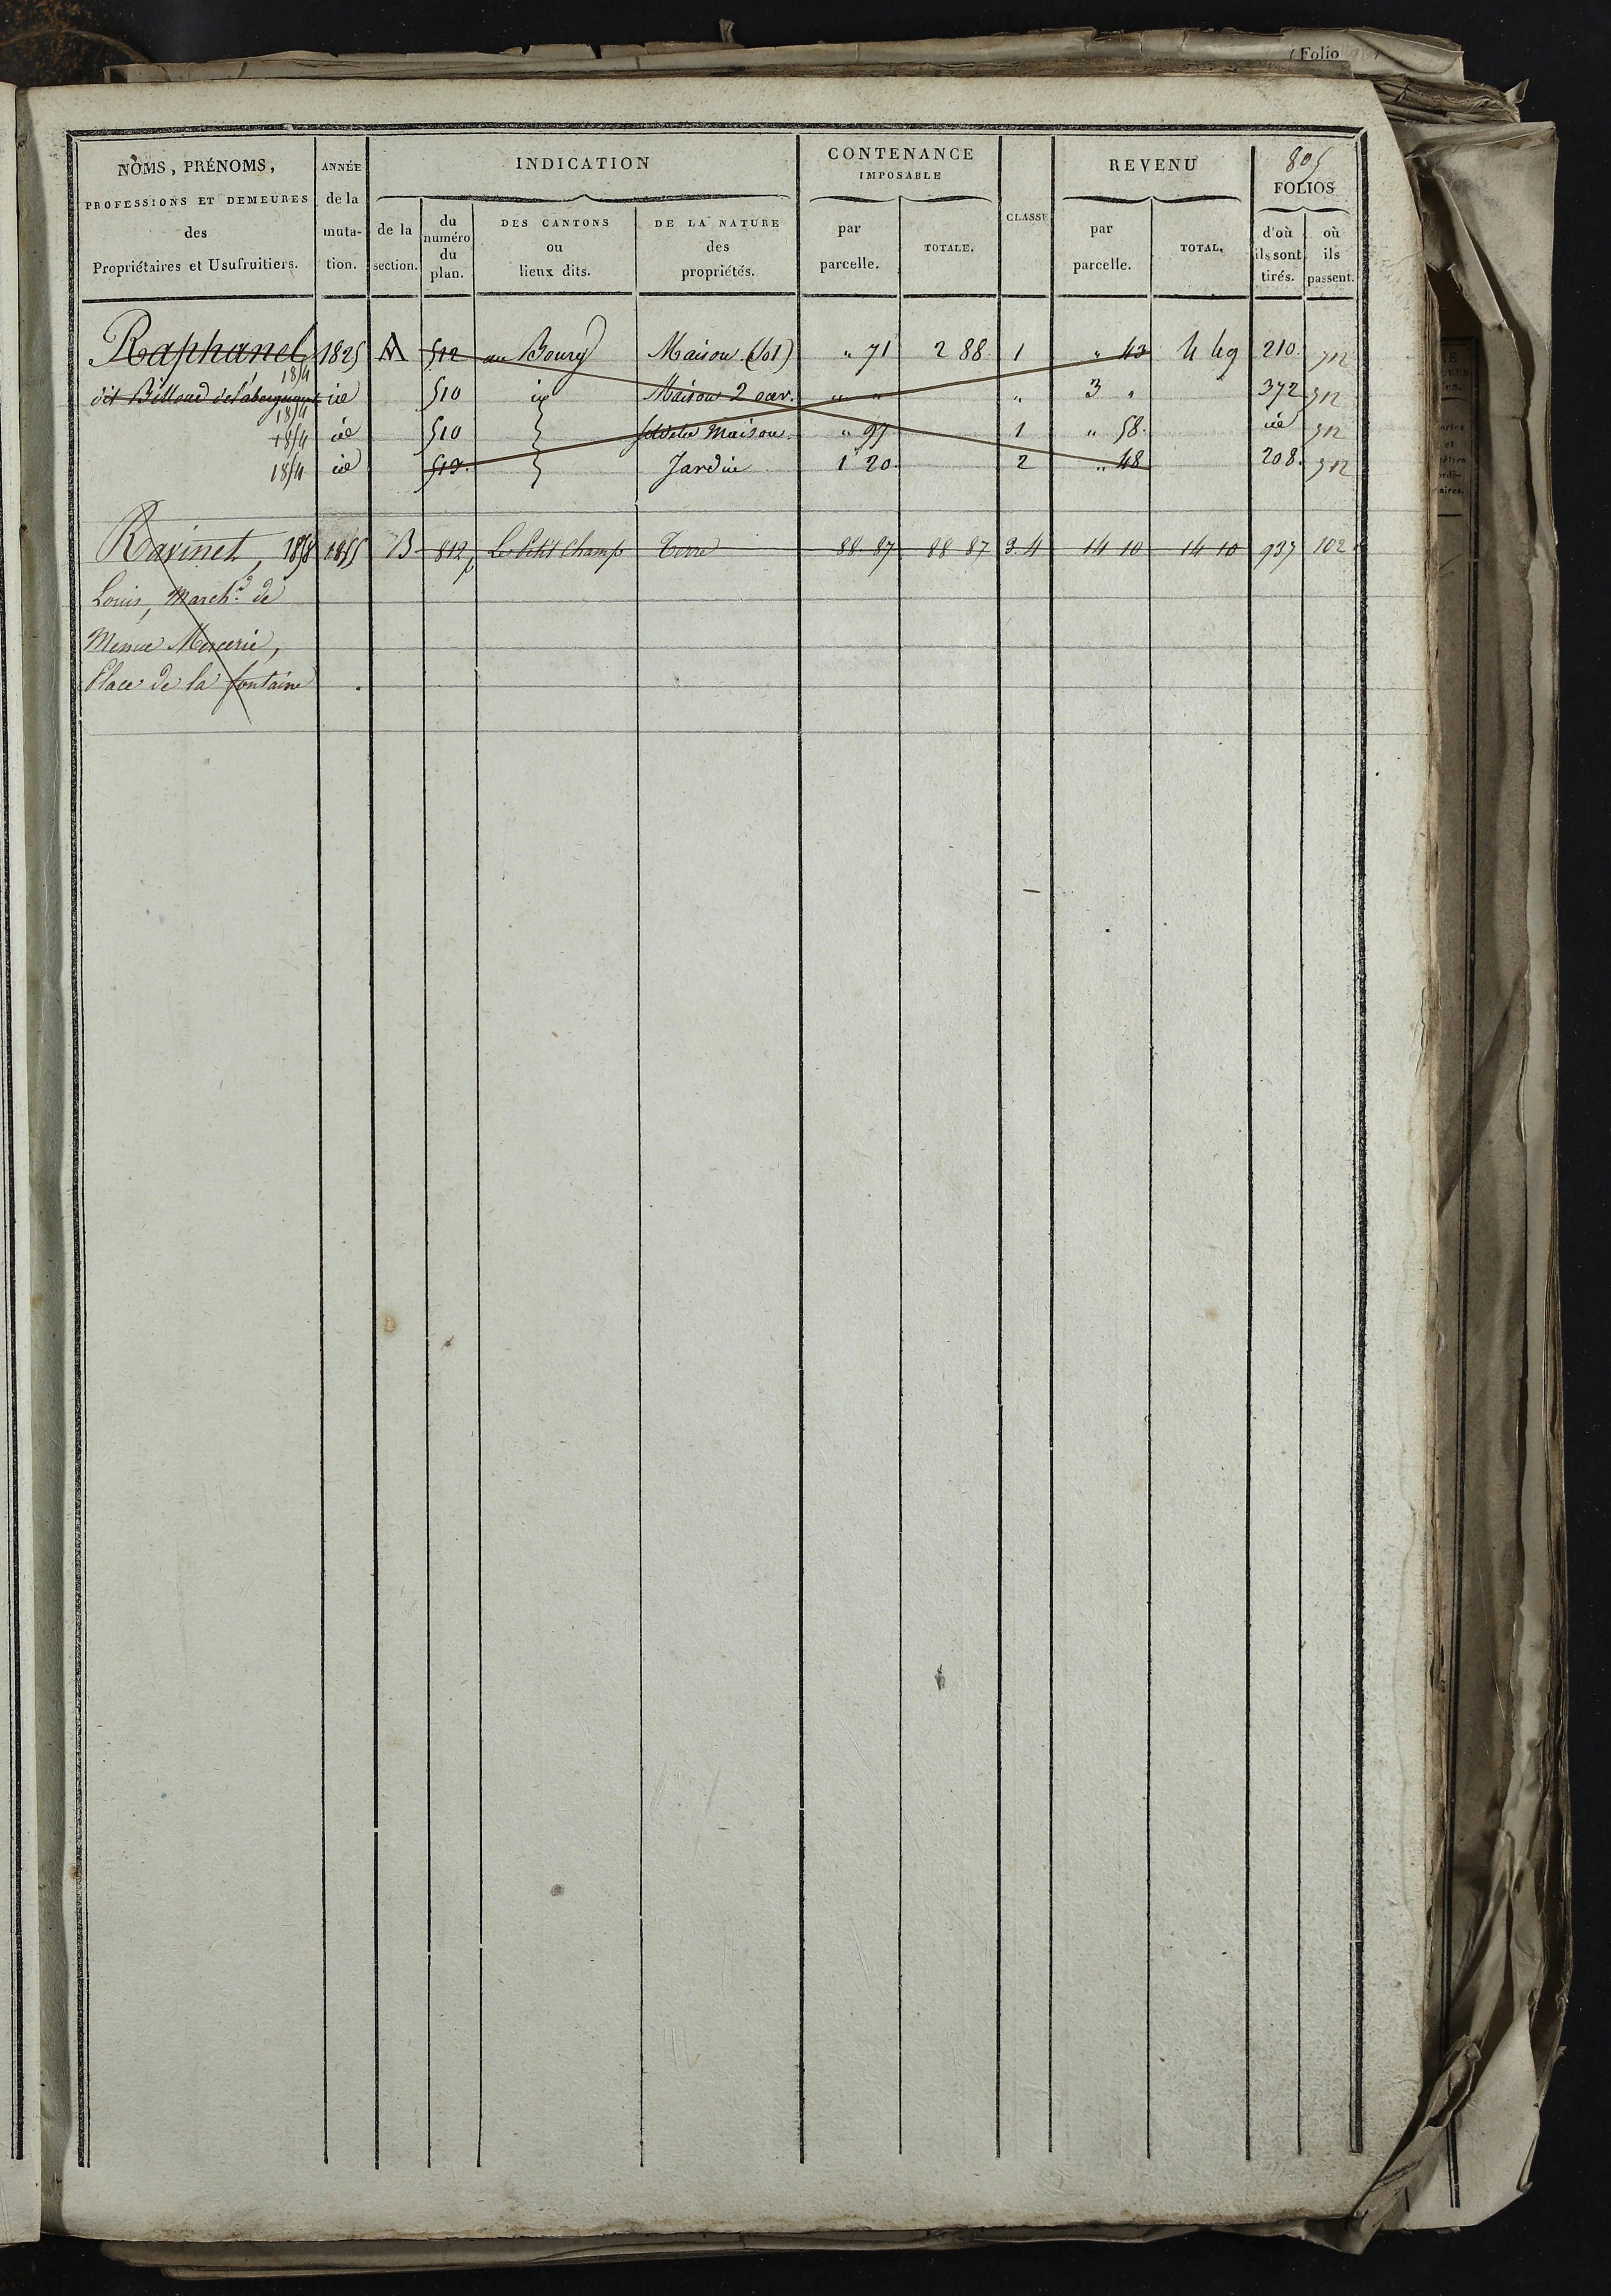 (Folio
NOMS, PRÉNOMS,
PROFESSIONS ET DEMEURES
des
Propriétaires et Usufruitiers.
ANNÉE
de la
muta-
tion.
INDICATION
de la
section.
du
numéro
du
plan.
DES CANTONS
ou
lieux dits.
DE LA NATURE
des
propriétés.
CONTENANCE
IMPOSABLE
par
parcelle.
TOTALE.
CLASSE
REVENU
par
parcelle.
TOTAL.
805
FOLIOS
d'où
ils sont
tirés.
où
ils
passent.
Raphanel 1854 1825 A 512 au Bourg Maison (sol) " 71 2 88 1 " 43 4 49 210 512
dit Billoud 1854 id 510 id Maison 2 ouv. " " " 3 " 372 512
1854 id 510 } Maison " 97 1 " 58 id 512
1854 id 513 } Jardin 1 20 2 " 48 208 512
Ravinet, 1858 1855 B 812p Le Petit Champ Terre 88 87 88 87 3.4 14 10 14 10 937 102
Louis, March.d de
Menue Mercerie,
Place de la fontaine